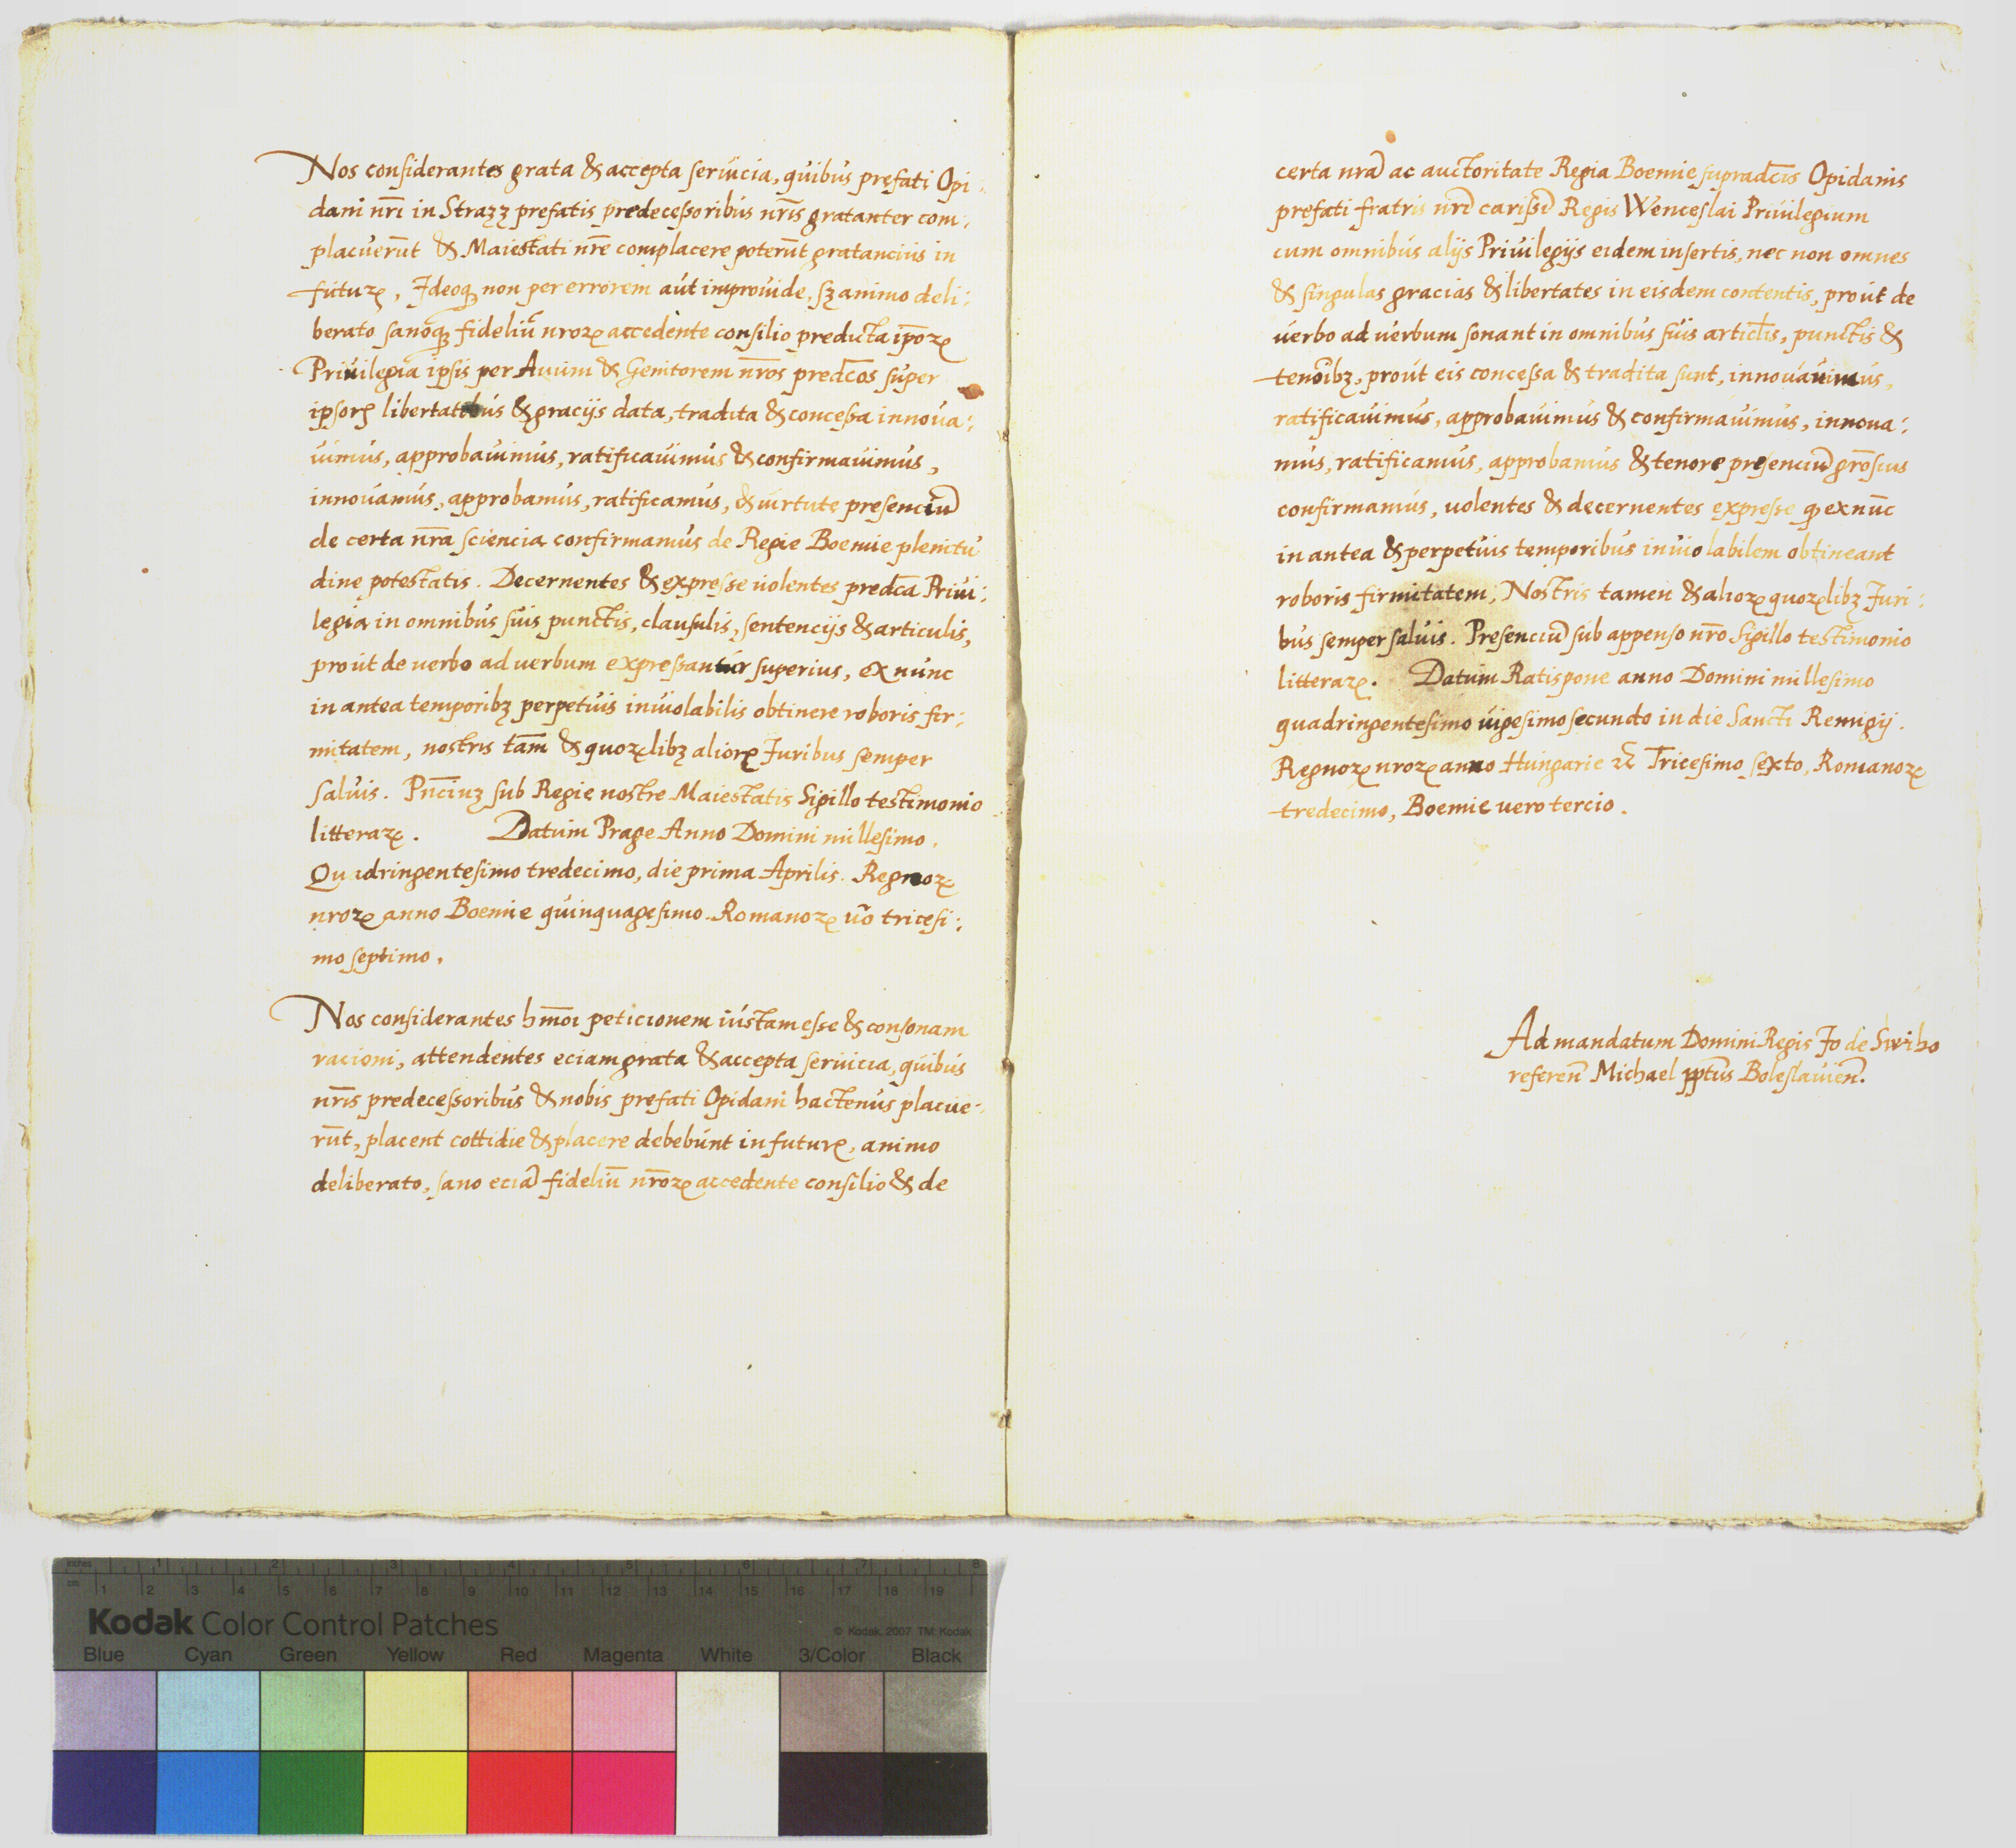 Nos considerantes grata & accepta seruicia, quibus prefati Opi:
dani nr̄i in Strazz prefatis predecessoribus nr̄is gratanter com:
placuerūt & Maiestati nr̄e complacere poterūt gratancius in
futurꝝ, Ideoqꝫ non per errorem aut improuide, sꝫ animo deli:
berato sanoqꝫ fideliū nroꝝ accedente consilio predicta ip̄oꝝ
Priuilegia ipsis per Auum & Genitorem nr̄os pred̄cos super
ipsorꝝ libertatibus & gracijs data, tradita & concessa innoua:
uimus, approbauimus, ratificauimus & confirmauimus,
innouamus, approbamus, ratificamus, & uirtute presenciū
de certa nr̄a sciencia confirmamus de Regie Boemie plenitu
dine potestatis. Decernentes & expresse uolentes pred̄ca Priui:
legia in omnibus suis punctis, clausulis, sentencijs & articulis,
prout de uerbo ad uerbum expressantur superius, ex nunc
in antea temporibꝫ perpetuis inuiolabilis obtinere roboris fir:
mitatem, nostris tam̄ & quoꝝlibꝫ aliorꝝ Juribus semper
saluis. Pn̄ciuꝫ sub Regie nostre Maiestatis Sigillo testimonio
litteraꝝ. Datum Prage Anno Domini millesimo.
Quadringentesimo tredecimo, die prima Aprilis. Regnoꝝ
nroꝝ anno Boemie quinquagesimo. Romanoꝝ ūo tricesi:
mo septimo.
Nos considerantes hm̄oi peticionem iustam esse & consonam
racioni, attendentes eciam grata & accepta seruicia, quibus
nr̄is predecessoribus & nobis prefati Opidani hactenus placue:
rūt, placent cottidie & placere debebunt in futurꝝ, animo
deliberato, sano eciā fideliū nr̄oꝝ accedente consilio & de
certa nrā ac auctoritate Regia Boemie suprad̄cis Opidanis
prefati fratris nrī carissī Regis Wenceslai Priuilegium
cum omnibus alijs Priuilegijs eidem insertis, nec non omnes
& singulas gracias & libertates in eisdem contentis, prout de
uerbo ad uerbum sonant in omnibus suis articl̄is, punctis &
tenoībꝫ, prout eis concessa & tradita sunt, innouauimus,
ratificauimus, approbauimus & confirmauimus, innoua:
mus, ratificamus, approbamus & tenore presenciū gr̄osius
confirmamus, uolentes & decernentes expresse qꝫ ex nūc
in antea & perpetuis temporibus inuiolabilem obtineant
roboris firmitatem, Nostris tamen & alioꝝ quoꝝlibꝫ Juri:
bus semper saluis. Presenciū sub appenso nr̄o Sigillo testimonio
litteraꝝ. Datum Ratispone anno Domini millesimo
quadringentesimo uigesimo secundo in die Sancti Remigij.
Regnoꝝ nroꝝ anno Hungarie ꝛc̄ Tricesimo sexto, Romanoꝝ
tredecimo, Boemie uero tercio.
Ad mandatum Domini Regis Jo de Swiho
referen̄ Michael pp̄tus Boleslauien̄.
inches 1 2 3 4 5 6 7 8
cm 1 2 3 4 5 6 7 8 9 10 11 12 13 14 15 16 17 18 19
Kodak Color Control Patches
© Kodak, 2007 TM: Kodak
Blue Cyan Green Yellow Red Magenta White 3/Color Black